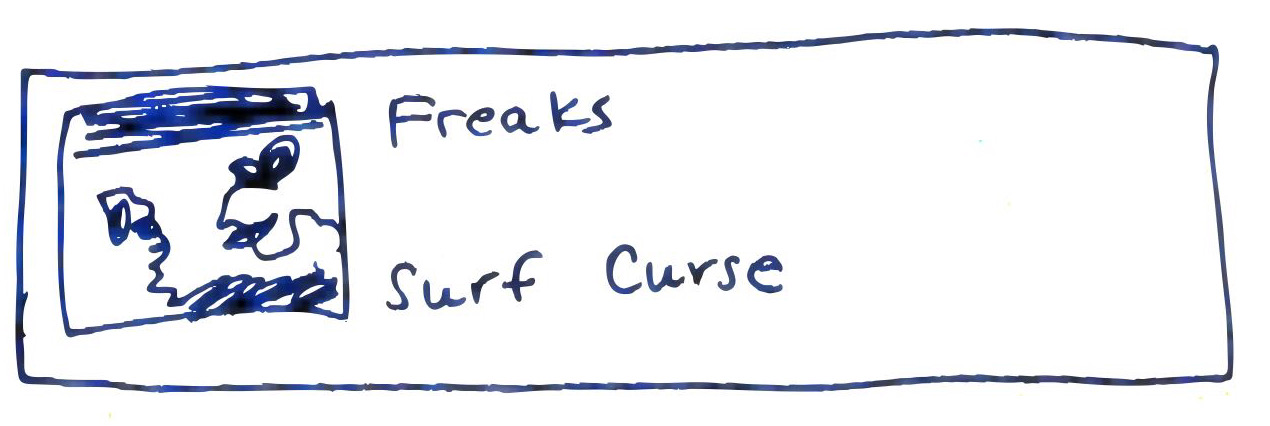 Freaks
Surf Curse